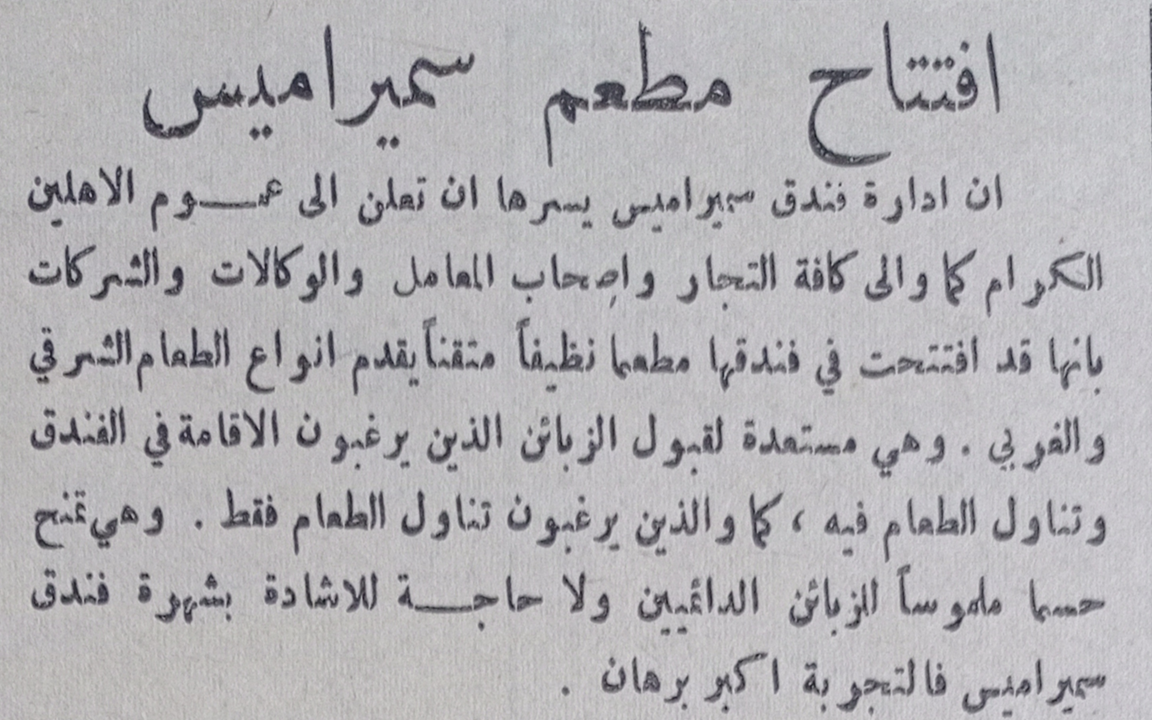 افتتاح مطعم سميراميس
ان ادارة فندق سميراميس يسرها ان تعلن الى عمـــوم الاهلين
الكرام كما والى كافة التجار واصحاب المعامل والوكالات والشركات
بانها قد افتتحت في فندقها مطعما نظيفاً متقناً يقدم انواع الطعام الشرقي
والغربي . وهي مستعدة لقبول الزبائن الذين يرغبون الاقامة في الفندق
وتناول الطعام فيه ، كما والذين يرغبون تناول الطعام فقط . وهي تمنح
حسما ملموساً للزبائن الدائميين ولا حاجـــة للاشادة بشهرة فندق
سميراميس فالتجربة اكبر برهان .